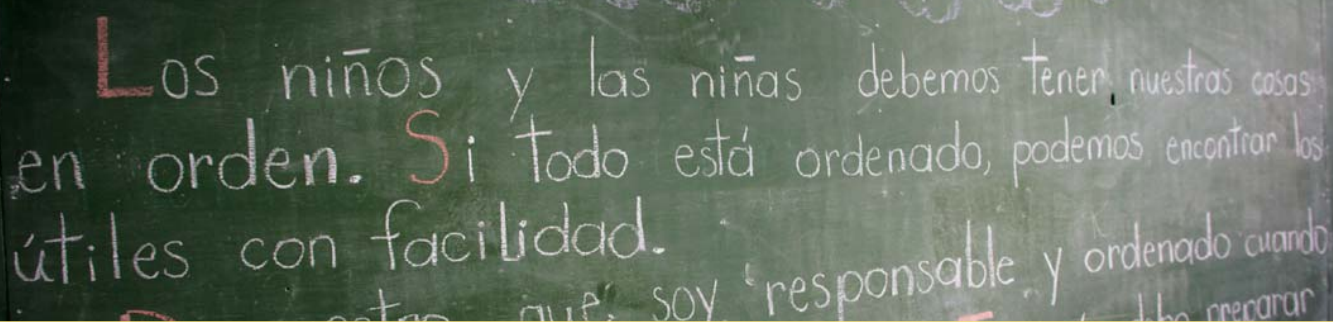 Los niños y las niñas debemos tener nuestras cosas
en orden. Si todo está ordenado, podemos encontrar los
útiles con facilidad.
que soy responsable y ordenado cuando
preparar